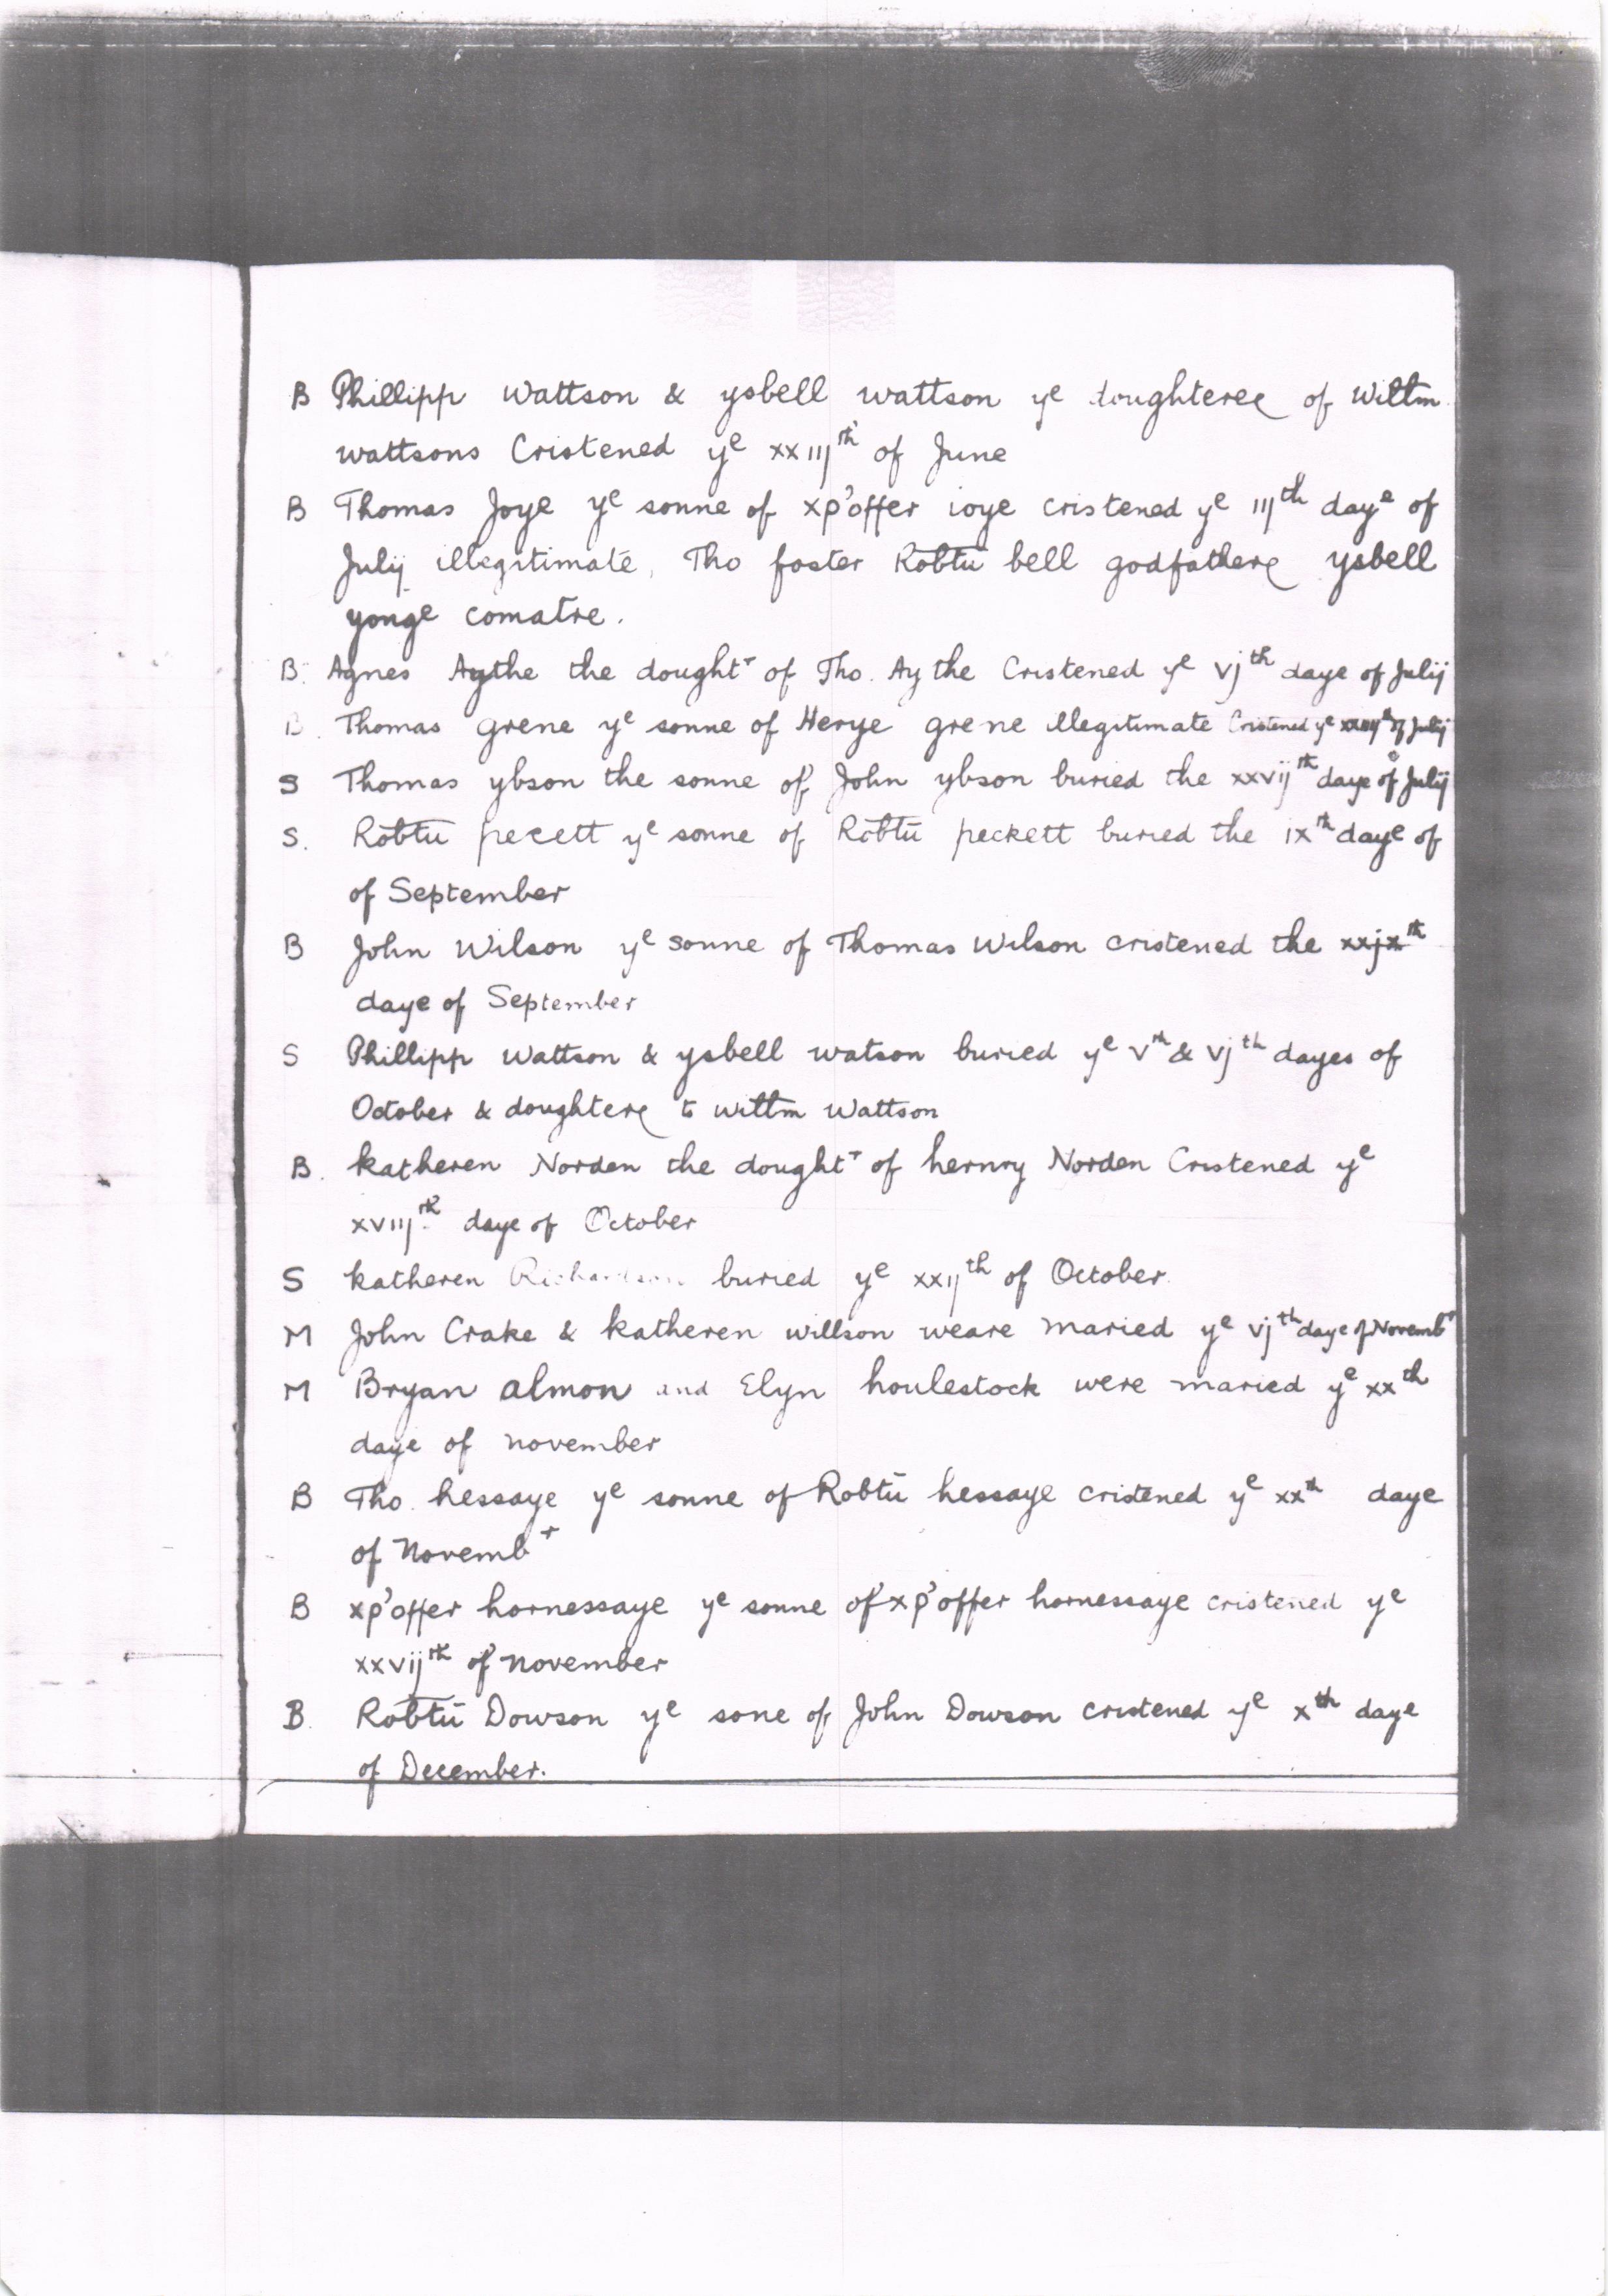 B Phillipp Wattson & ysbell wattson ye doughteree of Willm
wattsons Cristened ye xxiijth of June
B Thomas Joye ye sonne of xp'offer ioye cristened ye iijth daye of
Julij illegitimate, Tho foster Robtū bell godfathere ysbell
yonge comatre.
B. Agnes Aythe the dought^r of Tho. Aythe Cristened ye vjth daye of Julij
B. Thomas grene ye sonne of Herye grene illegitimate Cristened ye of Julij
S Thomas ybson the sonne of John ybson buried the xxvijth daye of Julij
S. Robtū pecett ye sonne of Robtū peckett buried the ixth daye of
of September
B John Wilson ye sonne of Thomas Wilson cristened the xxjxth
daye of September
S Phillipp Wattson & ysbell watson buried ye vth & vjth dayes of
October & doughtere to willm Wattson
B. katheren Norden the dought^r of hernry Norden Cristened ye
xviijth daye of October
S katheren Richardson buried ye xxijth of October
M John Crake & katheren willson weare maried ye vjth daye of Novemb^r
M Bryan almon and Elyn houlestock were maried ye xxth
daye of november
B Tho. hessaye ye sonne of Robtū hessaye cristened ye xxth daye
of Novemb^r
B xp'offer hornessaye ye sonne of xp'offer hornessaye cristened ye
xxvijth of november
B. Robtū Dowson ye sone of John Dowson cristened ye xth daye
of December.